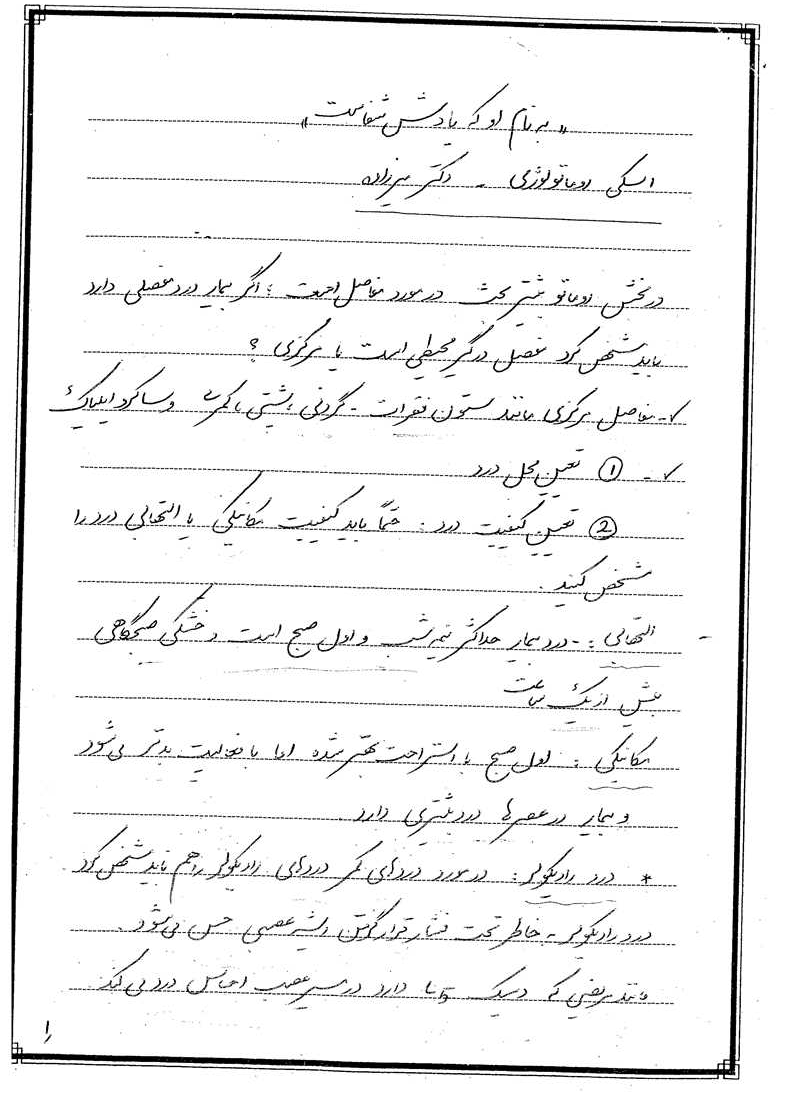 «به نام او که یادش شفاست»
اسکی روماتولوژی - دکتر میرزاده
در بخش روماتو بیشتر بحث در مورد مفاصل است ؛ اگر بیمار درد مفصلی دارد
باید مشخص کرد مفصل درگیر محیطی است یا مرکزی ؟
✓- مفاصل مرکزی مانند ستون فقرات - گردنی ، پشتی ، کمری و ساکروایلیاک
✓- ① تعیین محل درد
② تعیین کیفیت درد : حتماً باید کیفیت مکانیکی یا التهابی درد را
مشخص کنید .
- التهابی : - درد بیمار حداکثر نیمه شب و اول صبح است و خشکی صبحگاهی
بیش از یک ساعت
مکانیکی : اول صبح با استراحت بهتر شده اما با فعالیت بدتر می شود
و بیمار در عصرها درد بیشتری دارد .
* درد رادیکولر : در مورد دردهای کمر دردهای رادیکولر را هم باید مشخص کرد
درد رادیکولر - بخاطر تحت فشار قرار گرفتن ریشه عصبی حس می شود .
مانند مریضی که دیسک L5 دارد در مسیر عصب احساس درد می کند
۱